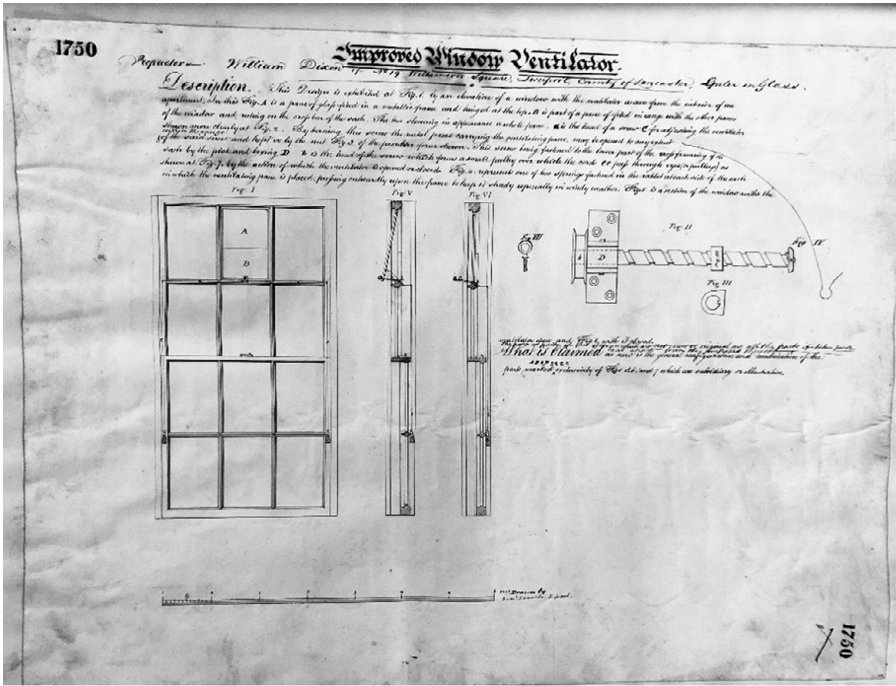 1750
Improved Window Ventilator.
Proprietor William Dixon of No 19 Wilkinson Square, Liverpool, County of Lancaster, Dealer in Glass.
Description. This Design is exhibited at Fig. 1. by an elevation of a window with the ventilator as seen from the interior of an
apartment. In this Fig. A is a pane of glass fixed in a metallic frame and hinged at the top. B is part of a pane of fixed in range with the other panes
of the window and resting on the cross bar of the sash. The two showing in appearance a whole pane. is the head of a screw C for adjusting the ventilator
shown more clearly at Fig. 2. By turning this screw the metal frame carrying the ventilating pane, may be opened to any extent
of the said screw and kept so by the nut Fig 3. of the peculiar form shown. This screw being fastened to the lower part of the of the
sash by the plate and D b is the head of the screw which forms a small pulley over which the cords cc pass through
shown at Fig. 7. by the action of which the ventilator is opened or closed. Fig. 4. represents one of two springs fastened in the rabbet at each side of the sash
in which the ventilating pane is placed, pressing outwardly upon the frame to keep it steady especially in windy weather. Fig 5 is a section of the window with the
Fig. I
Fig. V
Fig. VI
A
B
Fig. III
Fig. II
Fig. IV
b
D
Fig. III
ventilator open and Fig. 6 with it closed.
What is claimed as new is the general configuration and combination of the
parts marked exclusively of Figs and 7 which are subsidiary or illustrative.
Drawn by
1750